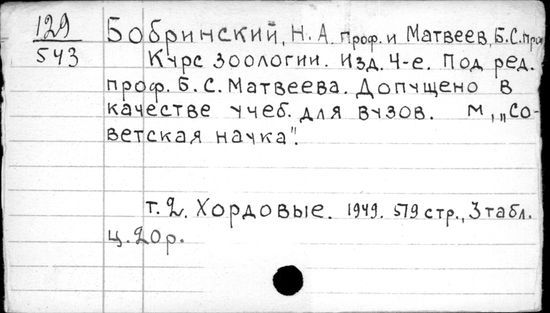 129
543
Бобринский, Н.А. проф. и Матвеев, Б.С. проф.
Курс зоологии. Изд. 4-е. Под ред.
проф. Б.С. Матвеева. Допущено в
качестве учеб. для вузов. М, „Со-
ветская наука".
т. 2. Хордовые. 1949. 579 стр., 3 табл.
ц. 20 р.